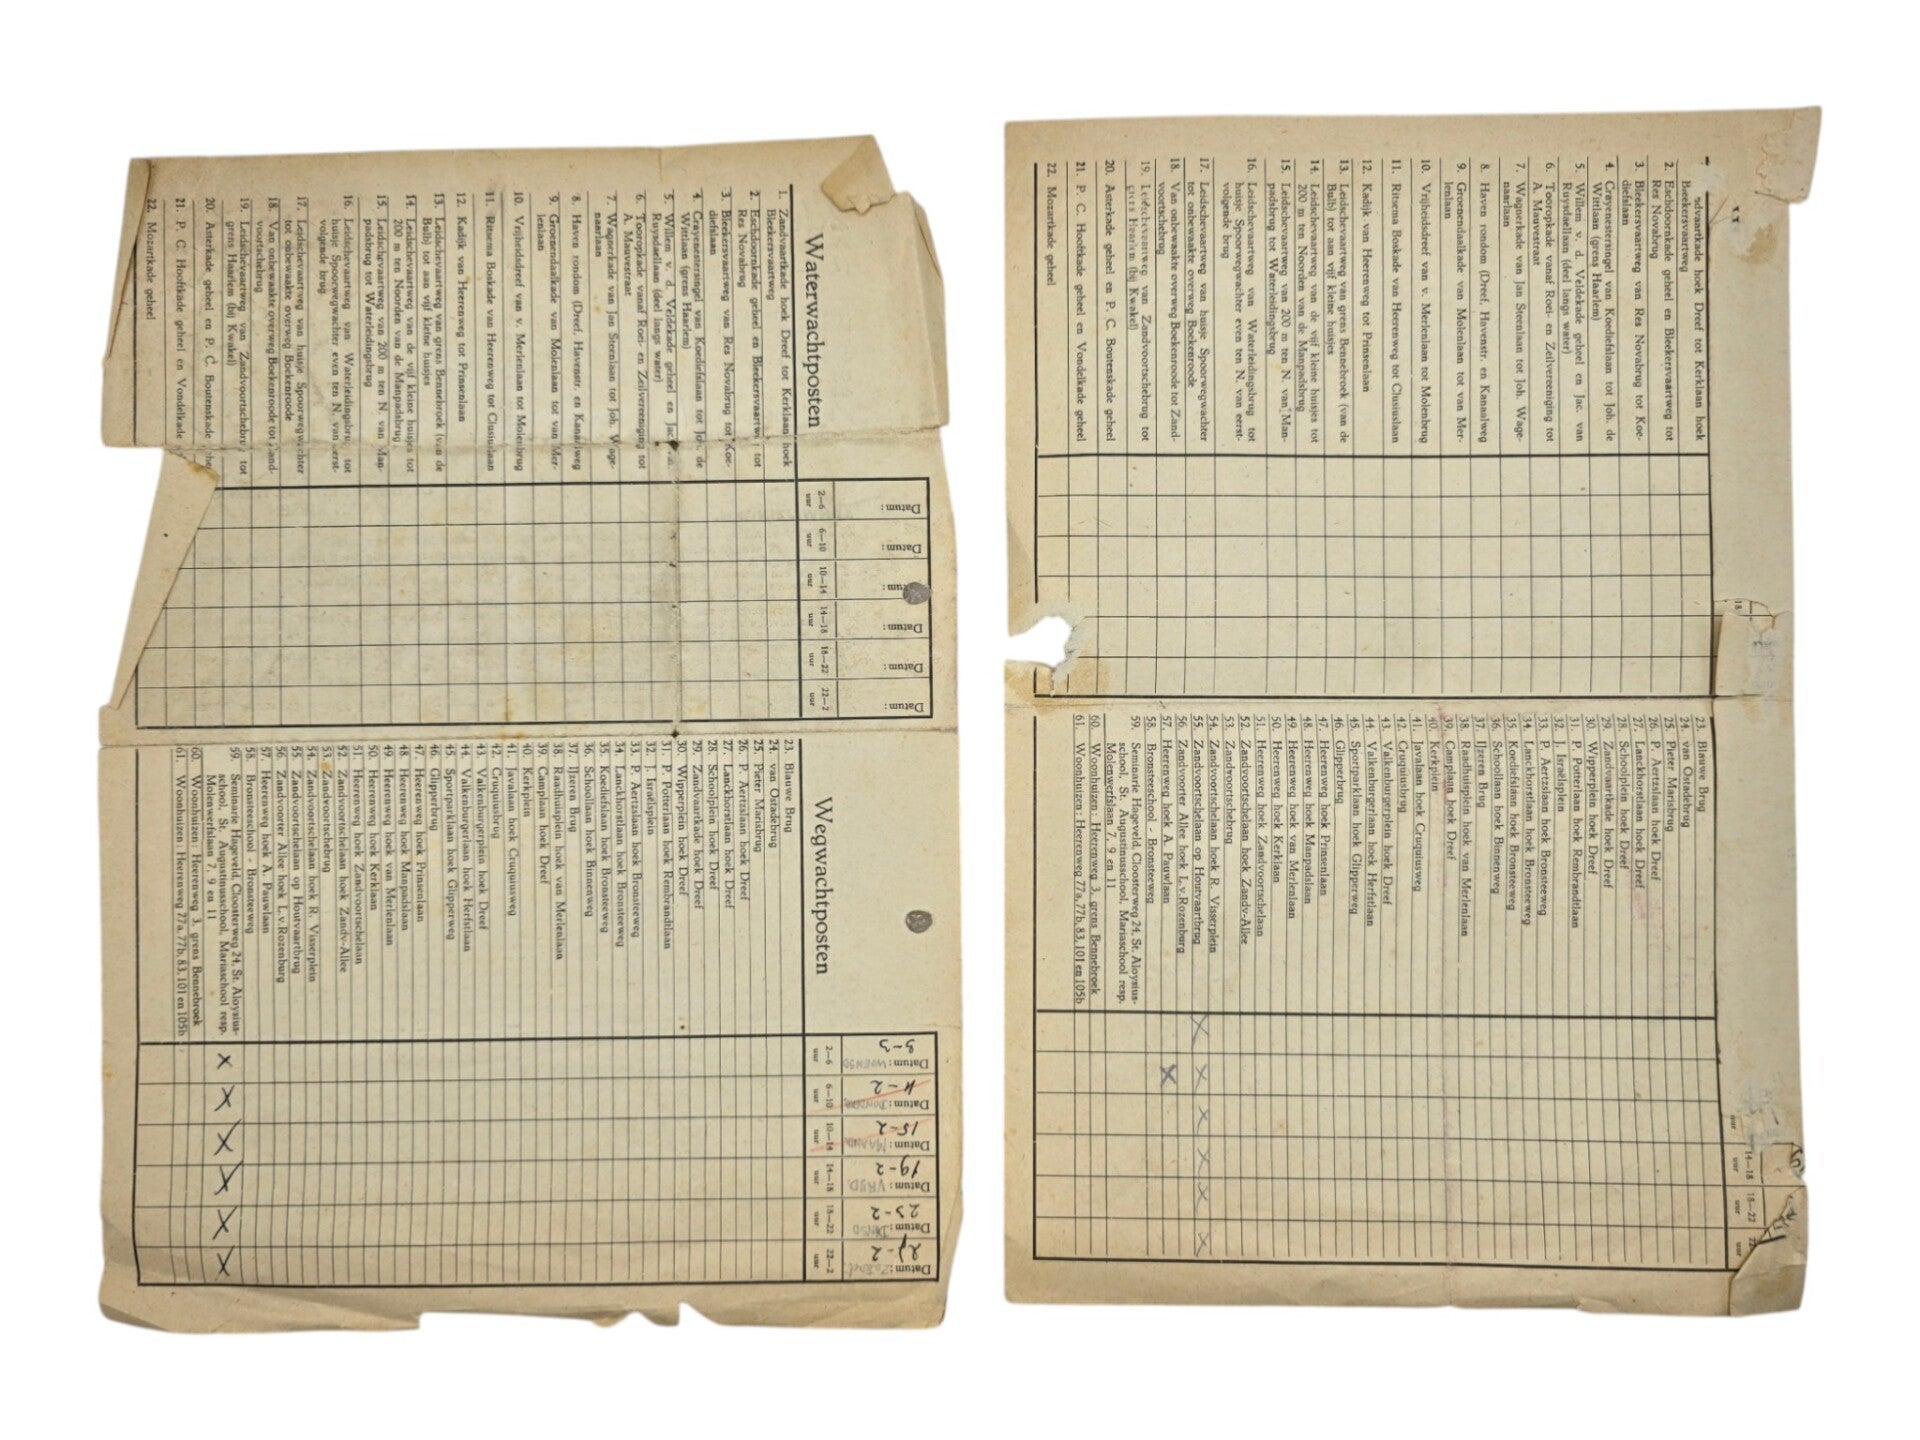 Waterwachtposten
1. Zandvaartkade hoek Dreef tot Kerklaan hoek
Bleekersvaartweg
2. Eschdoornkade geheel en Bleekersvaartw. tot
Res Novabrug
3. Bleekersvaartweg van Res Novabrug tot Koe-
diefslaan
4. Crayenestersingel van Koediefslaan tot Joh. de
Wittlaan (grens Haarlem)
5. Willem v. d. Veldekade geheel en Jac.
Ruysdaellaan (deel langs water)
6. Tooropkade vanaf Roei- en Zeilvereeniging tot
A. Mauvestraat
7. Wagnerkade van Jan Steenlaan tot Joh. Wage-
naarlaan
8. Haven rondom (Dreef, Havenstr. en Kanaalweg
9. Groenendaalkade van Molenlaan tot van Mer-
lenlaan
10. Vrijheidsdreef van v. Merlenlaan tot Molenbrug
11. Ritsema Boskade van Heerenweg tot Clusiuslaan
12. Kadijk van Heerenweg tot Prinsenlaan
13. Leidschevaartweg van grens Bennebroek (van de
Bulb) tot aan vijf kleine huisjes
14. Leidschevaartweg van de vijf kleine huisjes tot
200 m ten Noorden van de Manpadsbrug
15. Leidschevaartweg van 200 m ten N. van Man-
padsbrug tot Waterleidingsbrug
16. Leidschevaartweg van Waterleidingsbrug tot
huisje Spoorwegwachter even ten N. van eerst-
volgende brug
17. Leidschevaartweg van huisje Spoorwegwachter
tot onbewaakte overweg Boekenroode
18. Van onbewaakte overweg Boekenroode tot Zand-
voortschebrug
19. Leidschevaartweg van Zandvoortschebrug tot
grens Haarlem (bij Kwakel)
20. Asterkade geheel en P. C. Boutenskade
21. P. C. Hooftkade geheel en Vondelkade
22. Mozartkade geheel
Datum: Datum: Datum: Datum: Datum: Datum:
2—6 uur 6—10 uur 10—14 uur 14—18 uur 18—22 uur 22—2 uur
Wegwachtposten
23. Blauwe Brug
24. van Ostadebrug
25. Pieter Marisbrug
26. P. Aertzslaan hoek Dreef
27. Lanckhorstlaan hoek Dreef
28. Schoolplein hoek Dreef
29. Zandvaartkade hoek Dreef
30. Wipperplein hoek Dreef
31. P. Potterlaan hoek Rembrandtlaan
32. J. Israëlsplein
33. P. Aertzslaan hoek Bronsteeweg
34. Lanckhorstlaan hoek Bronsteeweg
35. Koediefslaan hoek Bronsteeweg
36. Schoollaan hoek Binnenweg
37. IJzeren Brug
38. Raadhuisplein hoek van Merlenlaan
39. Camplaan hoek Dreef
40. Kerkplein
41. Javalaan hoek Cruquiusweg
42. Cruquiusbrug
43. Valkenburgerplein hoek Dreef
44. Valkenburgerlaan hoek Herfstlaan
45. Sportparklaan hoek Glipperweg
46. Glipperbrug
47. Heerenweg hoek Prinsenlaan
48. Heerenweg hoek Manpadslaan
49. Heerenweg hoek van Merlenlaan
50. Heerenweg hoek Kerklaan
51. Heerenweg hoek Zandvoortschelaan
52. Zandvoortschelaan hoek Zandv-Allee
53. Zandvoortschebrug
54. Zandvoortschelaan hoek R. Visserplein
55. Zandvoortschelaan op Houtvaartbrug
56. Zandvoorter Allee hoek L. v. Rozenburg
57. Heerenweg hoek A. Pauwlaan
58. Bronsteeschool - Bronsteeweg
59. Seminarie Hageveld, Cloosterweg 24, St. Aloysius-
school, St. Augustinusschool, Mariaschool resp.
Molenwerfslaan 7, 9 en 11 X X X X X X
60. Woonhuizen: Heerenweg 3, grens Bennebroek
61. Woonhuizen: Heerenweg 77a, 77b, 83, 101 en 105b
Datum: WOENSD 3-3
Datum: DONDERD. 11-2
Datum: MAAND. 15-2
Datum: VRIJD. 19-2
Datum: DINSD 23-2
Datum: 27-2
2—6 uur 6—10 uur 10—14 uur 14—18 uur 18—22 uur 22—2 uur
hoek Dreef tot Kerklaan hoek
Bleekersvaartweg
2. Eschdoornkade geheel en Bleekersvaartweg tot
Res Novabrug
3. Bleekersvaartweg van Res Novabrug tot Koe-
diefslaan
4. Crayenestersingel van Koediefslaan tot Joh. de
Wittlaan (grens Haarlem)
5. Willem v. d. Veldekade geheel en Jac. van
Ruysdaellaan (deel langs water)
6. Tooropkade vanaf Roei- en Zeilvereeniging tot
A. Mauvestraat
7. Wagnerkade van Jan Steenlaan tot Joh. Wage-
naarlaan
8. Haven rondom (Dreef, Havenstr. en Kanaalweg
9. Groenendaalkade van Molenlaan tot van Mer-
lenlaan
10. Vrijheidsdreef van v. Merlenlaan tot Molenbrug
11. Ritsema Boskade van Heerenweg tot Clusiuslaan
12. Kadijk van Heerenweg tot Prinsenlaan
13. Leidschevaartweg van grens Bennebroek (van de
Bulb) tot aan vijf kleine huisjes
14. Leidschevaartweg van de vijf kleine huisjes tot
200 m ten Noorden van de Manpadsbrug
15. Leidschevaartweg van 200 m ten N. van Man-
padsbrug tot Waterleidingsbrug
16. Leidschevaartweg van Waterleidingsbrug tot
huisje Spoorwegwachter even ten N. van eerst-
volgende brug
17. Leidschevaartweg van huisje Spoorwegwachter
tot onbewaakte overweg Boekenroode
18. Van onbewaakte overweg Boekenroode tot Zand-
voortschebrug
19. Leidschevaartweg van Zandvoortschebrug tot
grens Haarlem (bij Kwakel)
20. Asterkade geheel en P. C. Boutenskade geheel
21. P. C. Hooftkade geheel en Vondelkade geheel
22. Mozartkade geheel
18
23. Blauwe Brug
24. van Ostadebrug
25. Pieter Marisbrug
26. P. Aertzslaan hoek Dreef
27. Lanckhorstlaan hoek Dreef
28. Schoolplein hoek Dreef
29. Zandvaartkade hoek Dreef
30. Wipperplein hoek Dreef
31. P. Potterlaan hoek Rembrandtlaan
32. J. Israëlsplein
33. P. Aertzslaan hoek Bronsteeweg
34. Lanckhorstlaan hoek Bronsteeweg
35. Koediefslaan hoek Bronsteeweg
36. Schoollaan hoek Binnenweg
37. IJzeren Brug
38. Raadhuisplein hoek van Merlenlaan
39. Camplaan hoek Dreef
40. Kerkplein
41. Javalaan hoek Cruquiusweg
42. Cruquiusbrug
43. Valkenburgerplein hoek Dreef
44. Valkenburgerlaan hoek Herfstlaan
45. Sportparklaan hoek Glipperweg
46. Glipperbrug
47. Heerenweg hoek Prinsenlaan
48. Heerenweg hoek Manpadslaan
49. Heerenweg hoek van Merlenlaan
50. Heerenweg hoek Kerklaan
51. Heerenweg hoek Zandvoortschelaan
52. Zandvoortschelaan hoek Zandv-Allee
53. Zandvoortschebrug
54. Zandvoortschelaan hoek R. Visserplein
55. Zandvoortschelaan op Houtvaartbrug X X X X X X
56. Zandvoorter Allee hoek L. v. Rozenburg
57. Heerenweg hoek A. Pauwlaan X
58. Bronsteeschool - Bronsteeweg
59. Seminarie Hageveld, Cloosterweg 24, St. Aloysius-
school, St. Augustinusschool, Mariaschool resp.
Molenwerfslaan 7, 9 en 11
60. Woonhuizen: Heerenweg 3, grens Bennebroek
61. Woonhuizen: Heerenweg 77a, 77b, 83, 101 en 105b
uur 14—18 uur 18—22 uur 22 uur